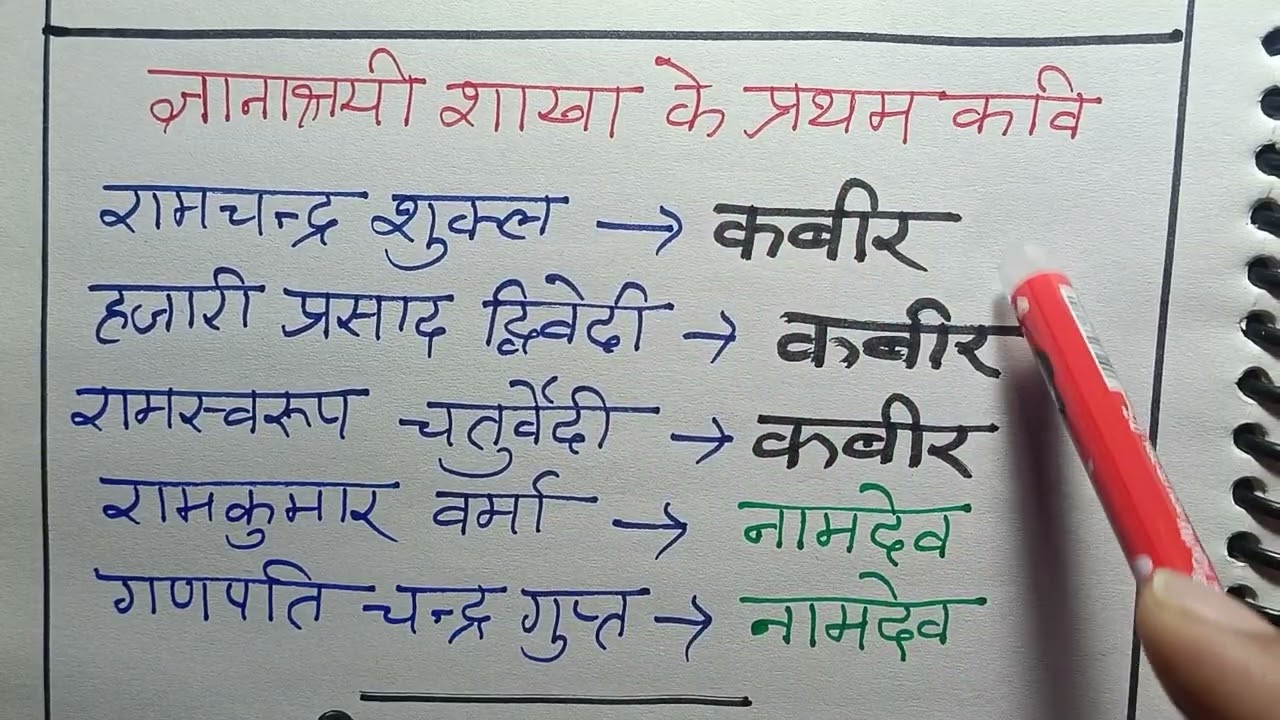 ज्ञानाश्रयी शाखा के प्रथम कवि
रामचन्द्र शुक्ल → कबीर
हजारी प्रसाद द्विवेदी → कबीर
रामस्वरूप चतुर्वेदी → कबीर
रामकुमार वर्मा → नामदेव
गणपति चन्द्र गुप्त → नामदेव